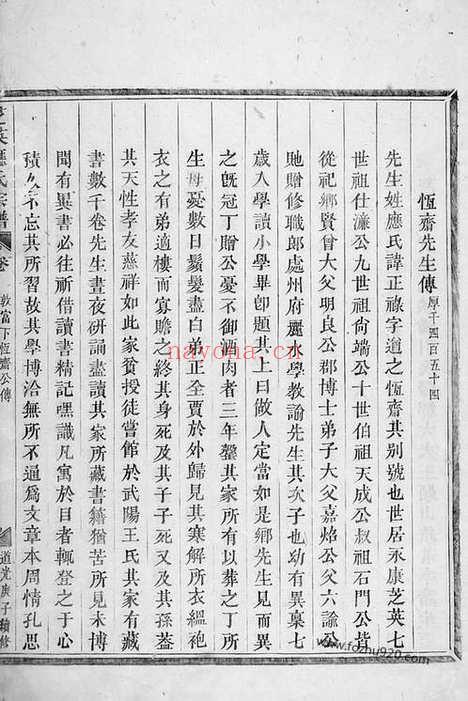 恆齋先生傳 厚千四百五十四
先生姓應氏諱正祿字道之恆齋其別號也世居永康芝英七
世祖仕濂公九世祖尙端公十世伯祖天成公叔祖石門公皆
從祀鄉賢曾大父明良公郡博士弟子大父嘉焰公父六諭公
貤贈修職郎處州府麗水學教諭先生其次子也幼有異稟七
歲入學讀小學畢卽題其上曰做人定當如是鄉先生見而異
之旣冠丁贈公憂不御酒肉者三年罄其家所有以葬之丁所
生母憂數日鬚髮盡白弟正全賈於外歸見其寒解所衣縕袍
衣之有弟適樓而寡贍之終其身死及其子子死又及其孫葢
其天性孝友慈祥如此家貧授徒嘗館於武陽王氏其家有藏
書數千卷先生晝夜研誦盡讀其家所藏書籍猶苦所見未博
聞有異書必往祈借讀書精記嘿識凡寓於目者輒登之于心
積久不忘其所習故其學博洽無所不通爲文章本周情孔思
芝英應氏宗譜 卷 敦富下恆齋公傳 道光庚子續修
nayona.cn
www.fozhu920.com